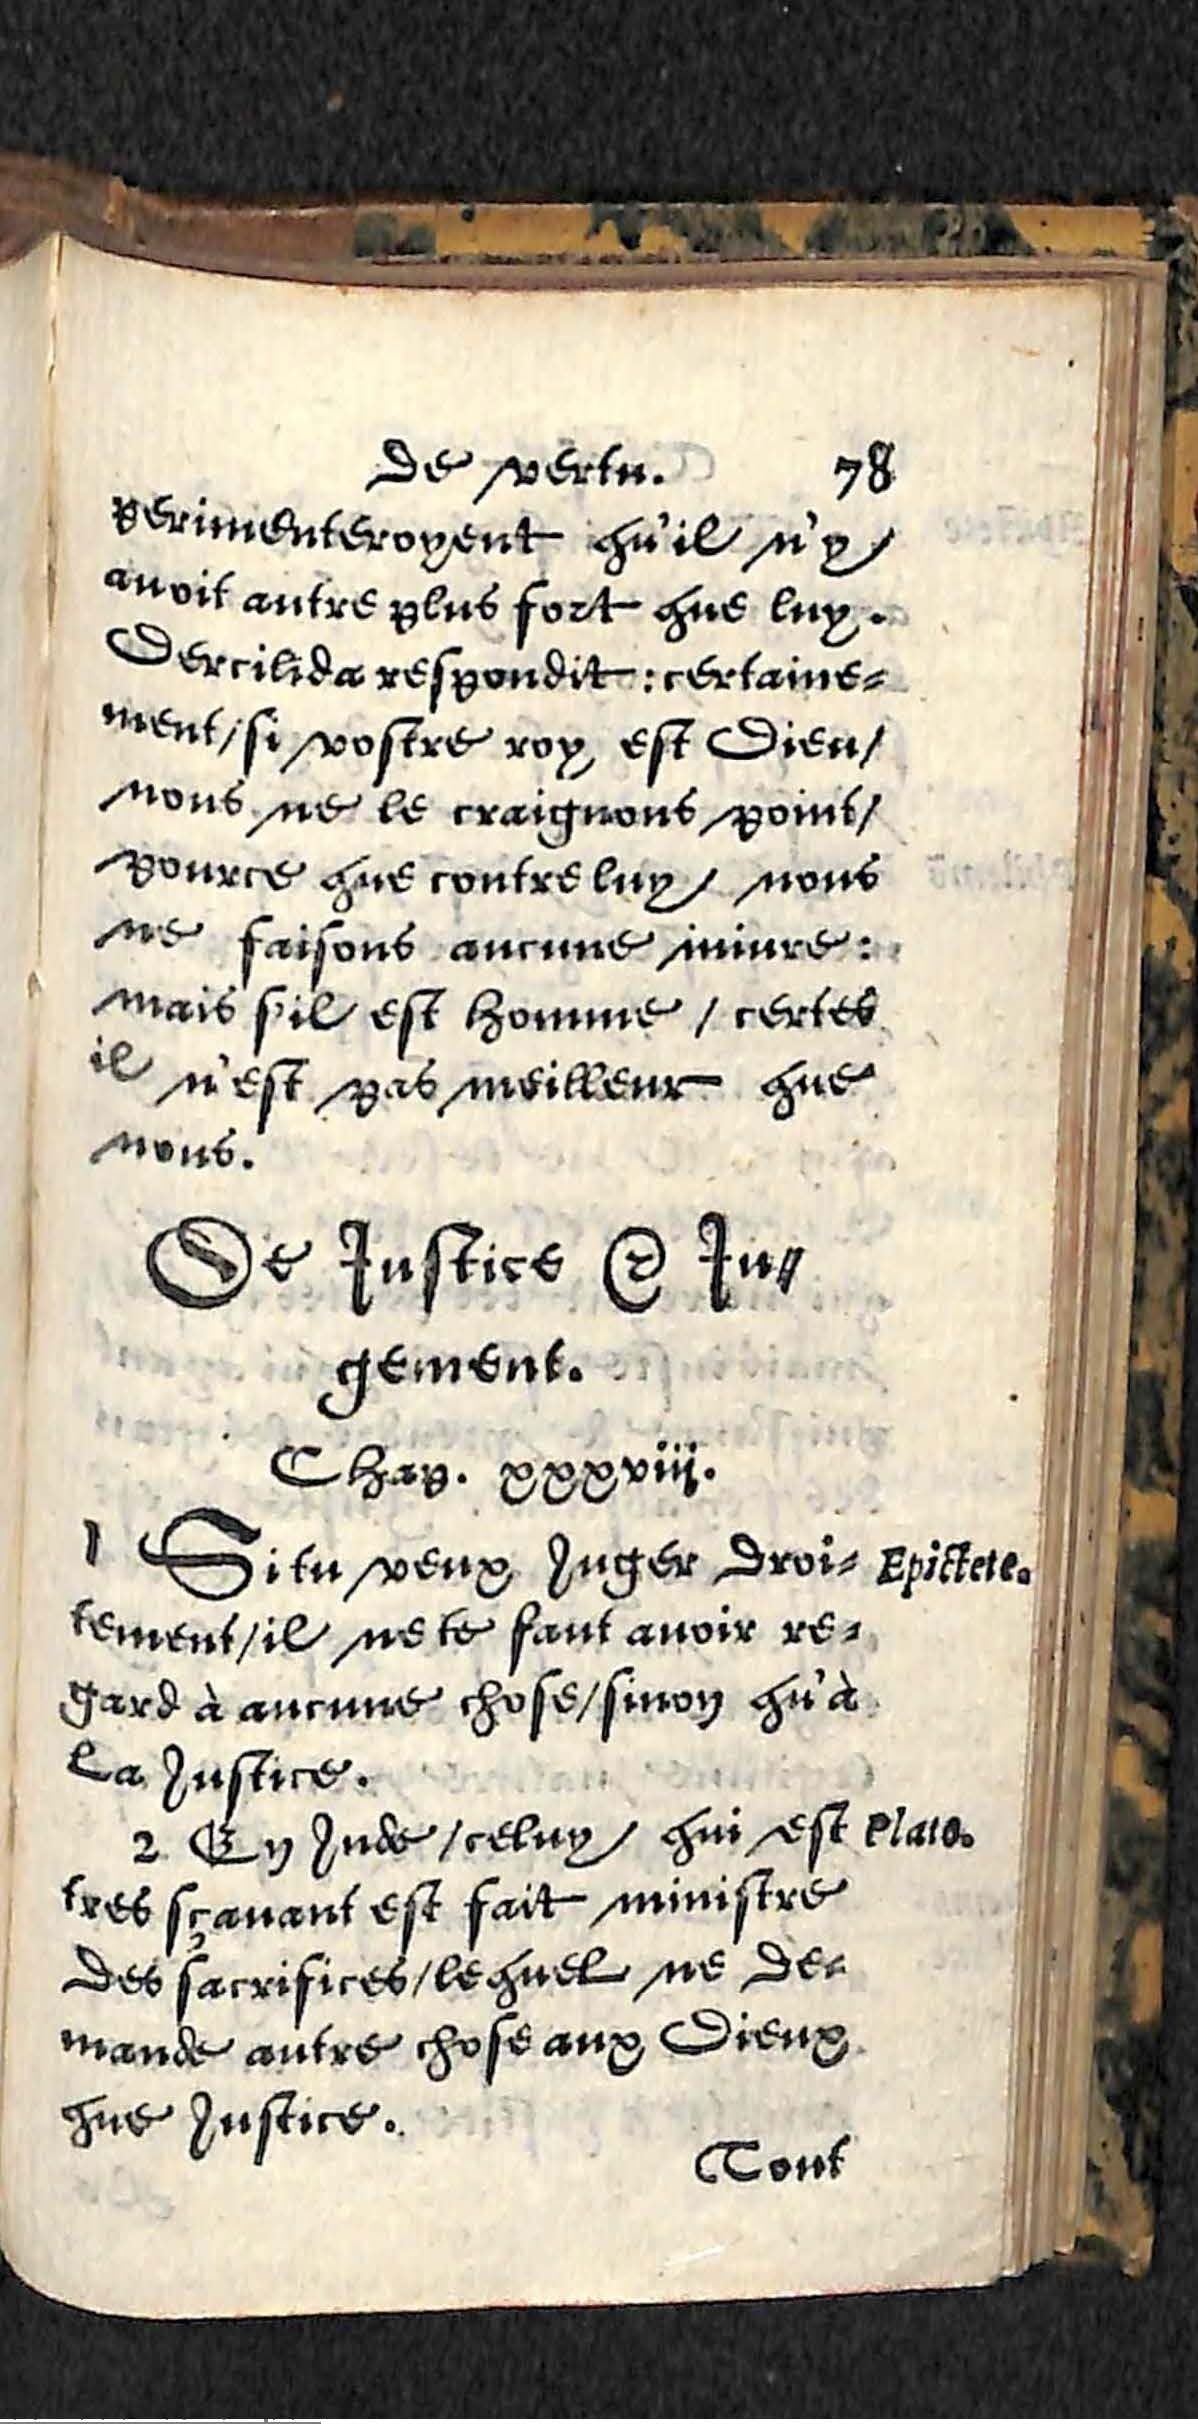 De vertu. 78
perimenteroyent qu'il n'y
auoit autre plus fort que luy.
Dercilida respondit : certaine-
ment/ si vostre roy est Dieu/
nous ne le craignons point/
pource que contre luy/ nous
ne faisons aucune iniure :
mais s'il est homme / certes
il n'est pas meilleur que
nous.
De Justice & Ju-
gement.
Chap. xxxviij.
1 Si tu veux Juger droi- Epictete.
tement/ il ne te faut auoir re-
gard à aucune chose/ sinon qu'à
la Justice.
2 En Inde / celuy / qui est Plato.
tres sçauant est fait ministre
des sacrifices/ lequel ne de-
mande autre chose aux Dieux
que Justice.
Tout